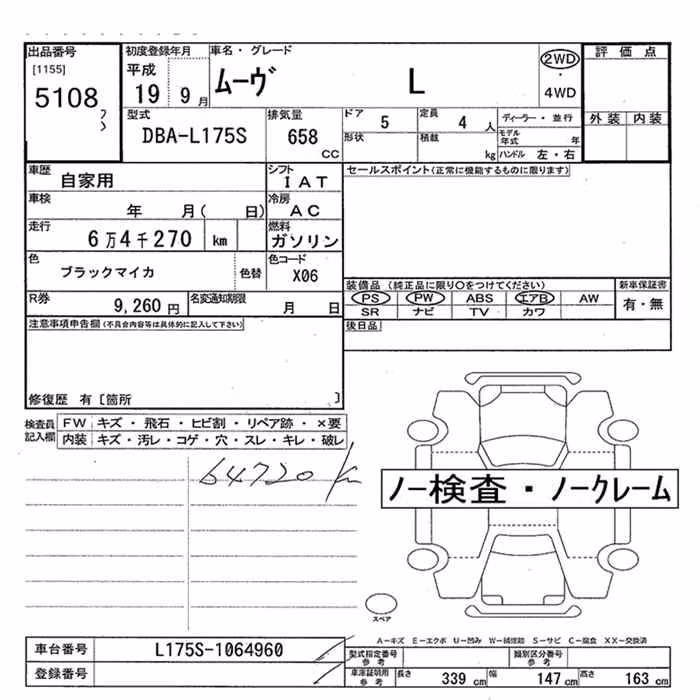 出品番号 初度登録年月 車名・グレード 2WD 評価点
[1155] 平成 ムーヴ L ・
5108 19 9月 4WD
フシ 型式 排気量 ドア 定員 ディーラー・並行 外装 内装
DBA-L175S 658 CC 5 4人 モデル年式 年
形状 積載 kg ハンドル 左・右
車歴 自家用 シフト IAT セールスポイント(正常に機能するものに限ります)
車検 年 月( 日) 冷房 AC
走行 6万4千270 km 燃料 ガソリン
色 ブラックマイカ 色替 色コード X06
装備品(純正品に限り○をつけてください) 新車保証書
R券 9,260円 名変通知期限 月 日 PS PW ABS エアB AW 有・無
SR ナビ TV カワ
注意事項申告欄(不具合内容等は具体的に記入して下さい) 後日品
修復歴 有[箇所 ]
検査員記入欄 FW キズ・飛石・ヒビ割・リペア跡・×要
内装 キズ・汚レ・コゲ・穴・スレ・キレ・破レ
64720 km
ノー検査・ノークレーム
スペア
A-キズ E-エクボ U-凹み W-補修跡 S-サビ C-腐食 XX-交換済
車台番号 L175S-1064960 型式指定番号 参考 類別区分番号 参考
登録番号 車庫証明用 参考 長さ 339cm 幅 147cm 高さ 163cm